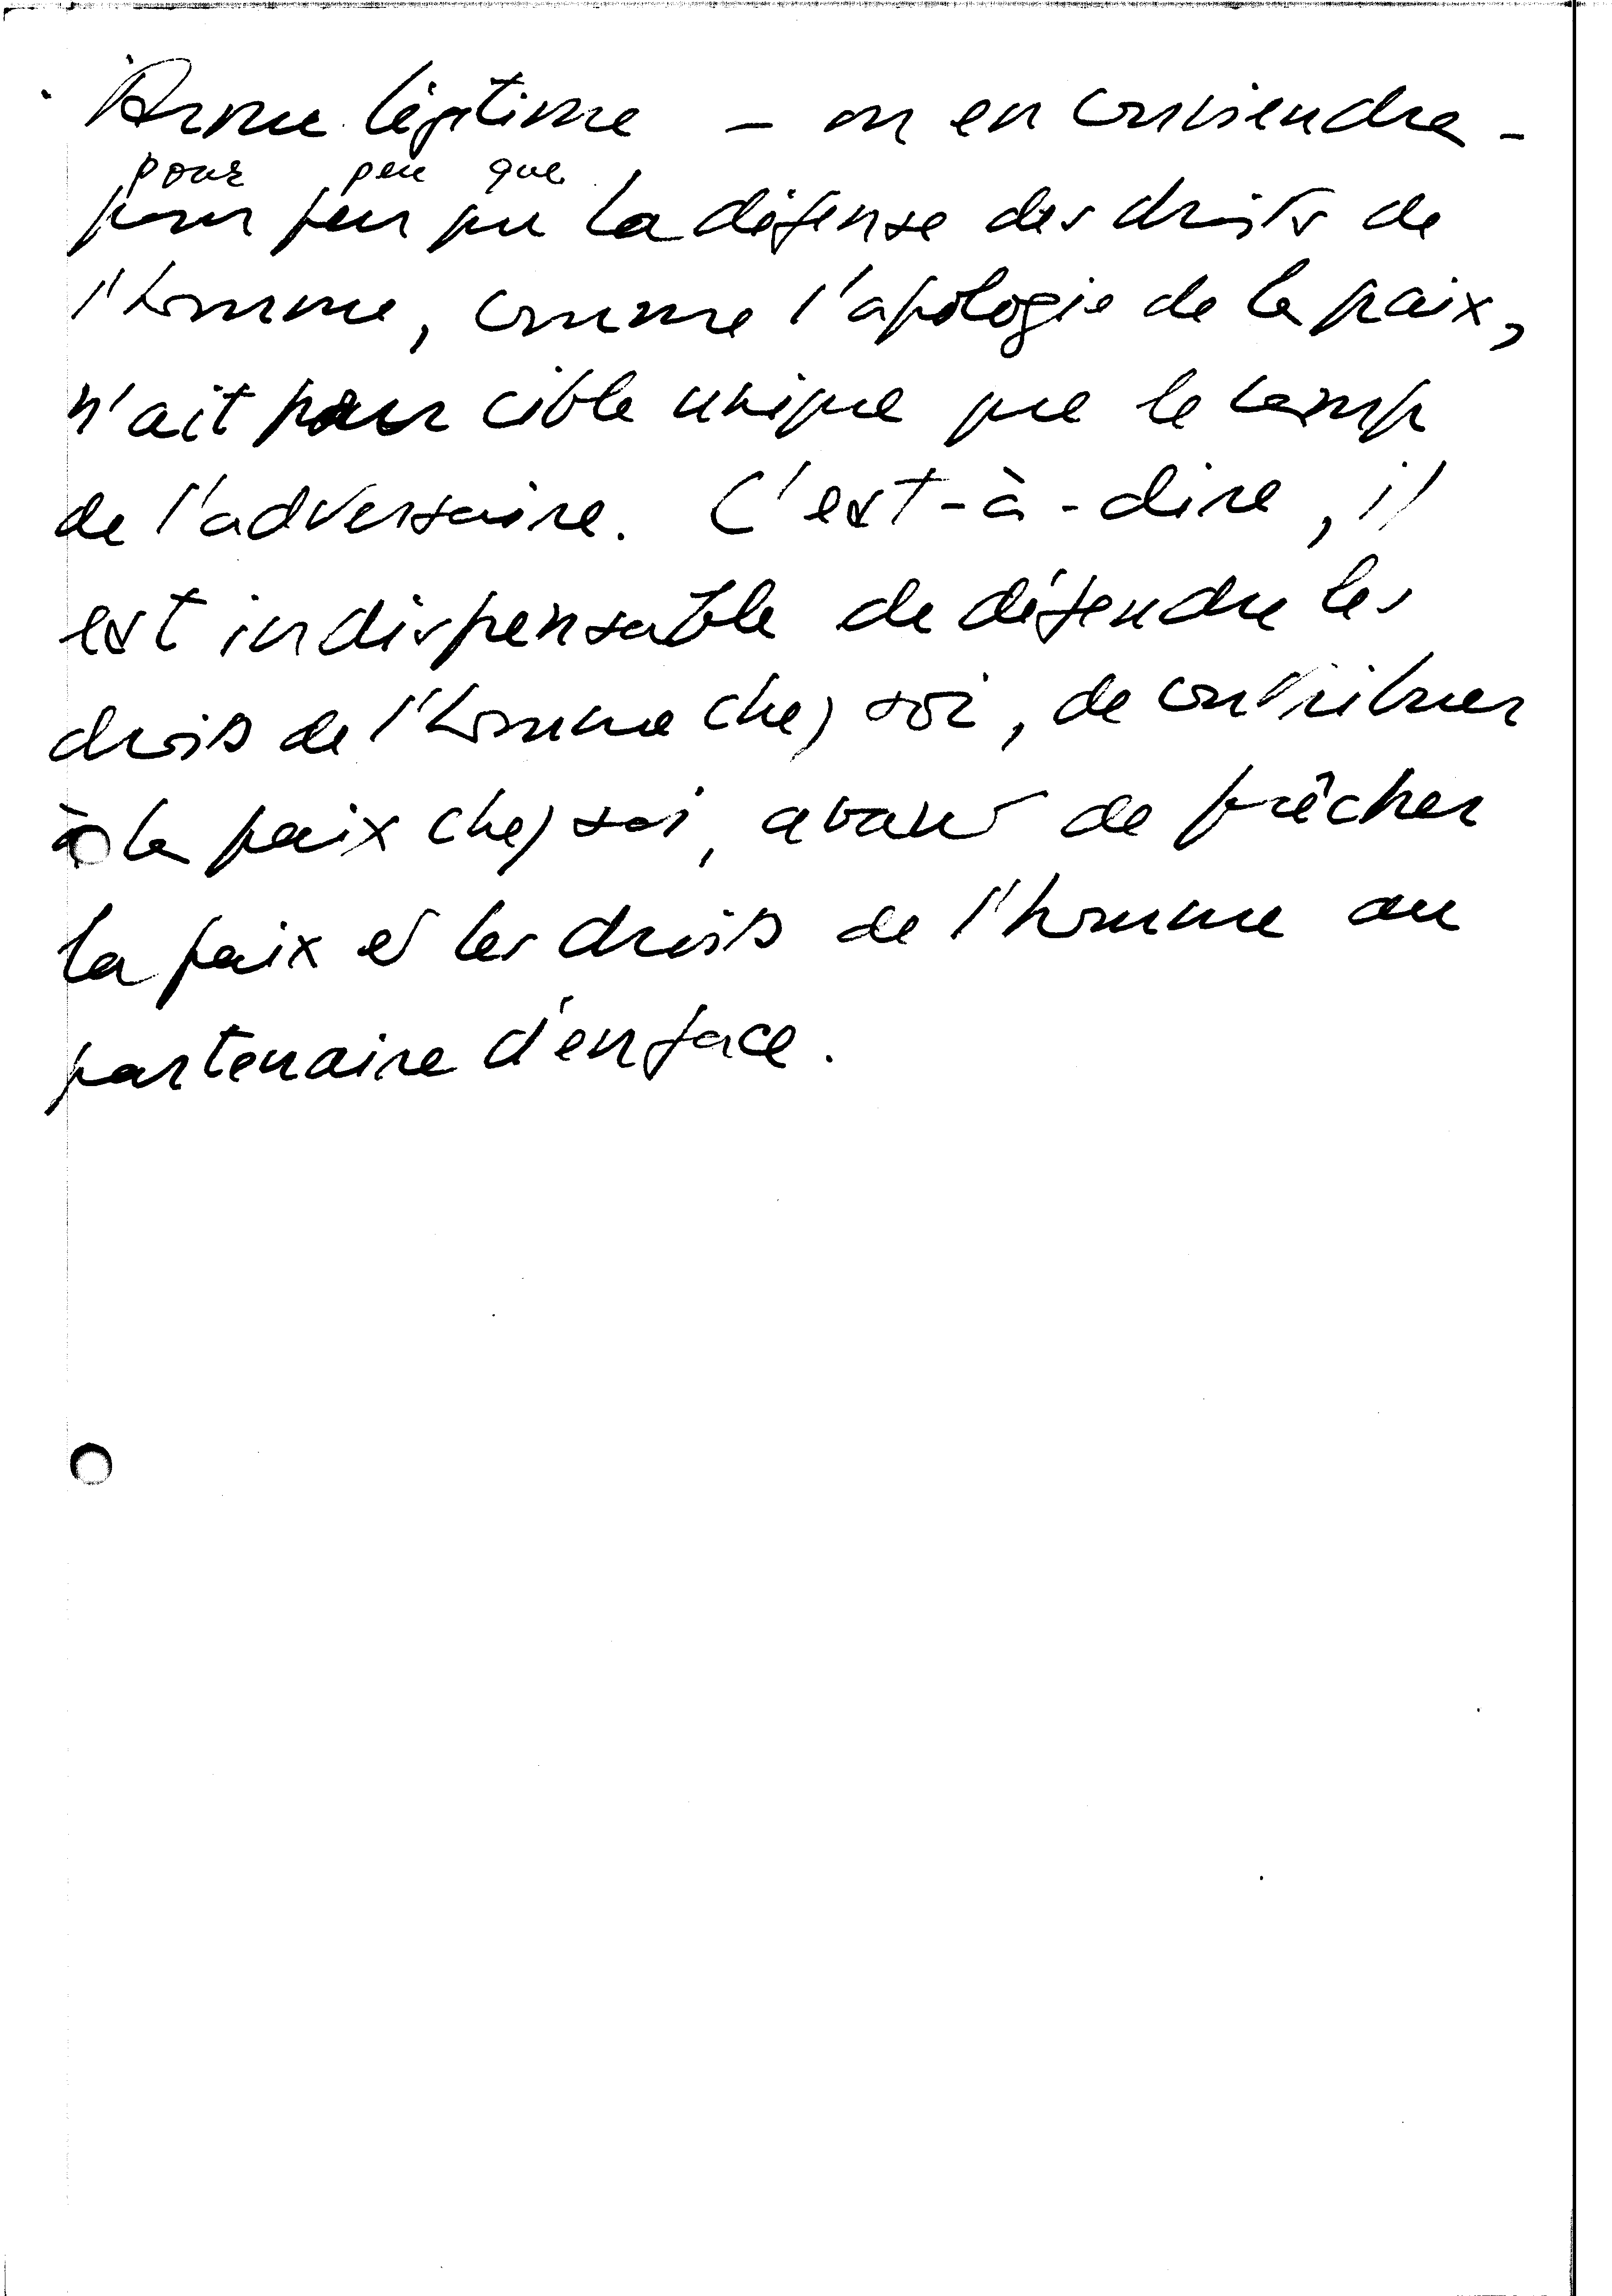 Arme légitime – on en conviendra –
pour peu que
pour peu que la défense des droits de
l'homme, comme l'apologie de la paix,
n'ait pour cible unique que le camp
de l'adversaire. C'est-à-dire, il
est indispensable de défendre les
droits de l'homme chez soi, de contribuer
à la paix chez soi, avant de prêcher
la paix et les droits de l'homme au
partenaire d'en face.